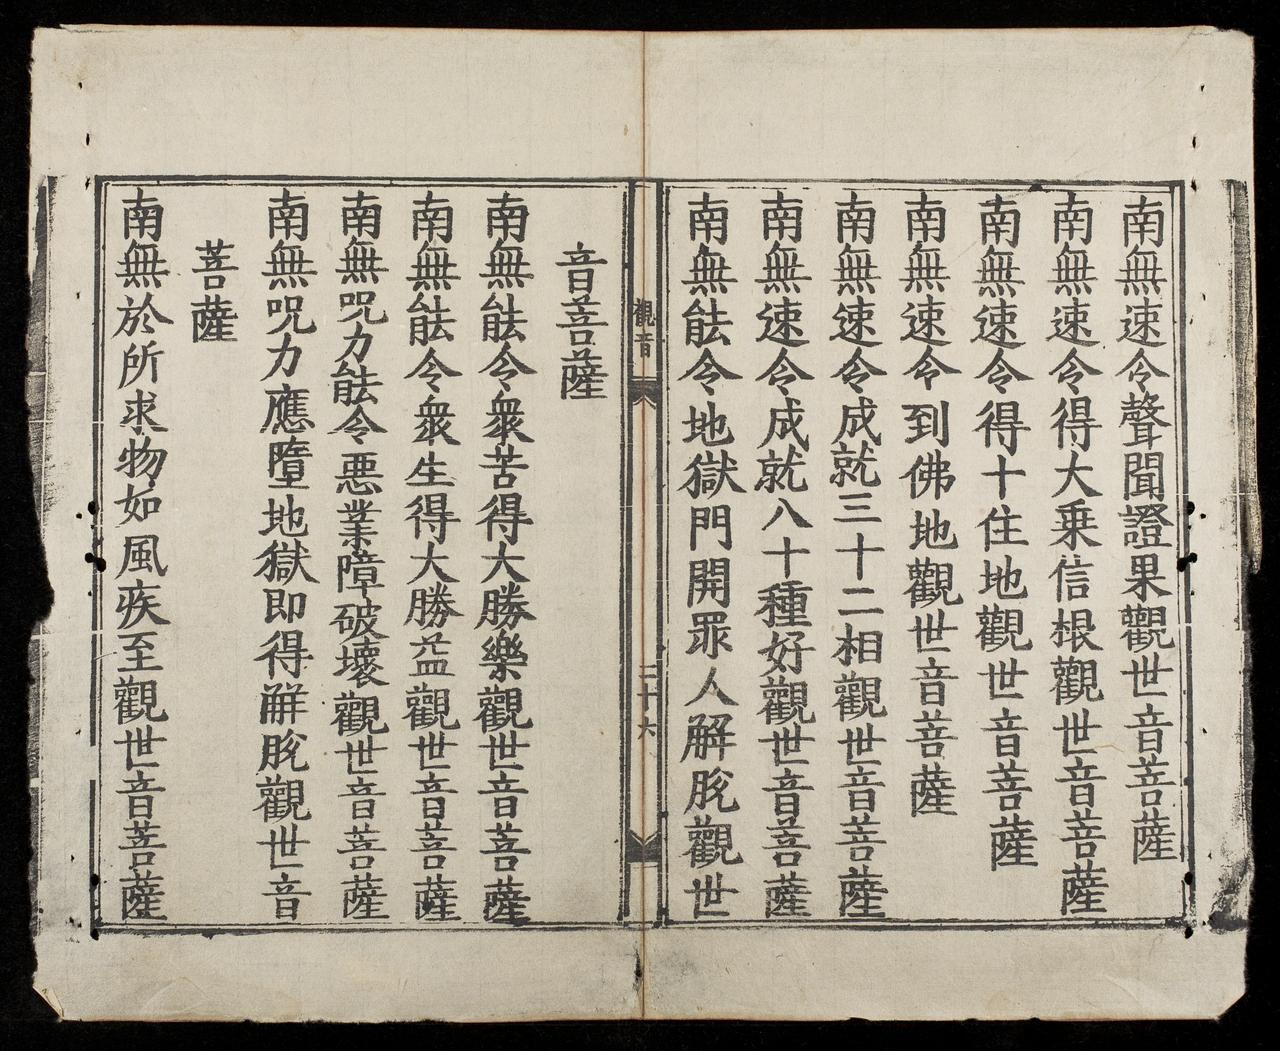 南無速令聲聞證果觀世音菩薩
南無速令得大乗信根觀世音菩薩
南無速令得十住地觀世音菩薩
南無速令到佛地觀世音菩薩
南無速令成就三十二相觀世音菩薩
南無速令成就八十種好觀世音菩薩
南無能令地獄門開罪人解脫觀世
觀音
三十六
音菩薩
南無能令衆苦得大勝樂觀世音菩薩
南無能令衆生得大勝益觀世音菩薩
南無呪力能令惡業障破壞觀世音菩薩
南無呪力應墮地獄即得解脫觀世音
菩薩
南無於所求物如風疾至觀世音菩薩